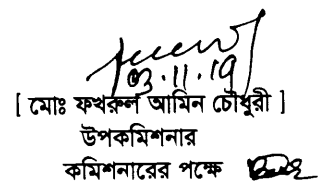 03.11.19
[ মোঃ ফখরুল আমিন চৌধুরী ]
উপকমিশনার
কমিশনারের পক্ষে